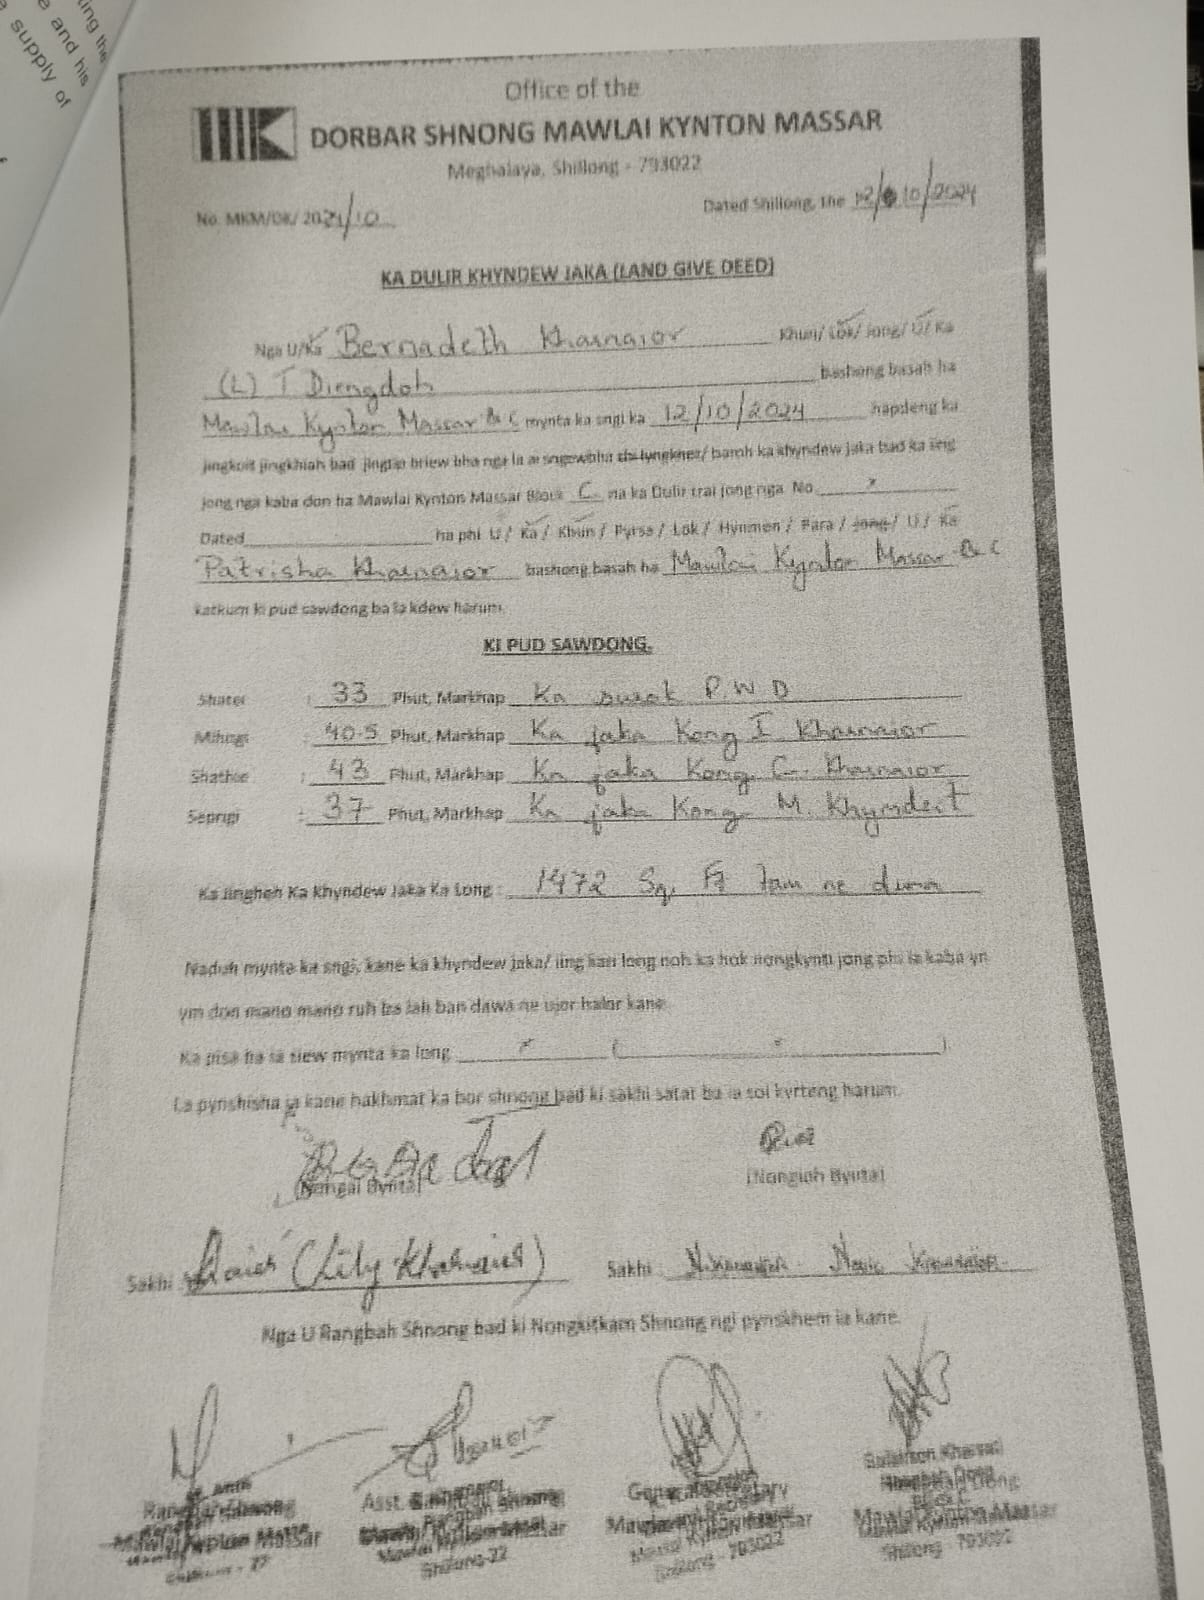 ing the
e and his
supply of
Office of the
DORBAR SHNONG MAWLAI KYNTON MASSAR
Meghalaya, Shillong - 793022
No. MKM/DK/ 2024/10
Dated Shillong, the 12/10/2024
KA DULIR KHYNDEW JAKA (LAND GIVE DEED)
Nga U/Ka Bernadeth Kharnaior Khun/ Lok/ Jong/ U/ Ka
(L) T Diengdoh bashong basah ha
Mawlai Kynton Massar B&C mynta ka sngi ka 12/10/2024 hapdeng ka
jingkoit jingkhiah bad jingtip briew bha nga la ai sngewbha shi lyngkhot/ baroh ka khyndew jaka bad ka iing
jong nga kaba don ha Mawlai Kynton Massar Block C na ka Dulir trai jong nga No x
Dated ha phi U / Ka / Khun / Pyrsa / Lok / Hynmen / Para / Jong / U / Ka
Patrisha Kharnaior bashong basah ha Mawlai Kynton Massar B&C
katkum ki pud sawdong ba la kdew harum.
KI PUD SAWDONG.
Shatei : 33 Phut, Markhap Ka surok P.W D
Mihngi : 40.5 Phut, Markhap Ka jaka Kong I Kharnaior
Shathie : 43 Phut, Markhap Ka jaka Kong C. Kharnaior
Sepngi : 37 Phut, Markhap Ka jaka Kong M. Khymdeit
Ka Jingheh Ka Khyndew Jaka Ka Long : 1472 Sq. Ft tam ne duna
Naduh mynta ka sngi, kane ka khyndew jaka/ iing kan long noh ka hok nongkynti jong phi ia kaba yn
ym don mano mano ruh ba lah ban dawa ne ujor halor kane.
Ka pisa ba la siew mynta ka long x ( x )
La pynshisha ia kane hakhmat ka bor shnong bad ki sakhi satat ba la soi kyrteng harum.
(Nongai Bynta)
(Nongioh Bynta)
Sakhi (Lily Kharnaior)
Sakhi : Kharnaior
Nga U Rangbah Shnong bad ki Nongkitkam Shnong ngi pynskhem ia kane.
Rangbah Shnong
Mawlai Kynton Massar
Asst. Rangbah Shnong
Mawlai Kynton Massar
Shillong-22
General Secretary
Mawlai Kynton Massar
Shillong - 793022
Rangbah Dong
Mawlai Kynton Massar
Shillong - 793022